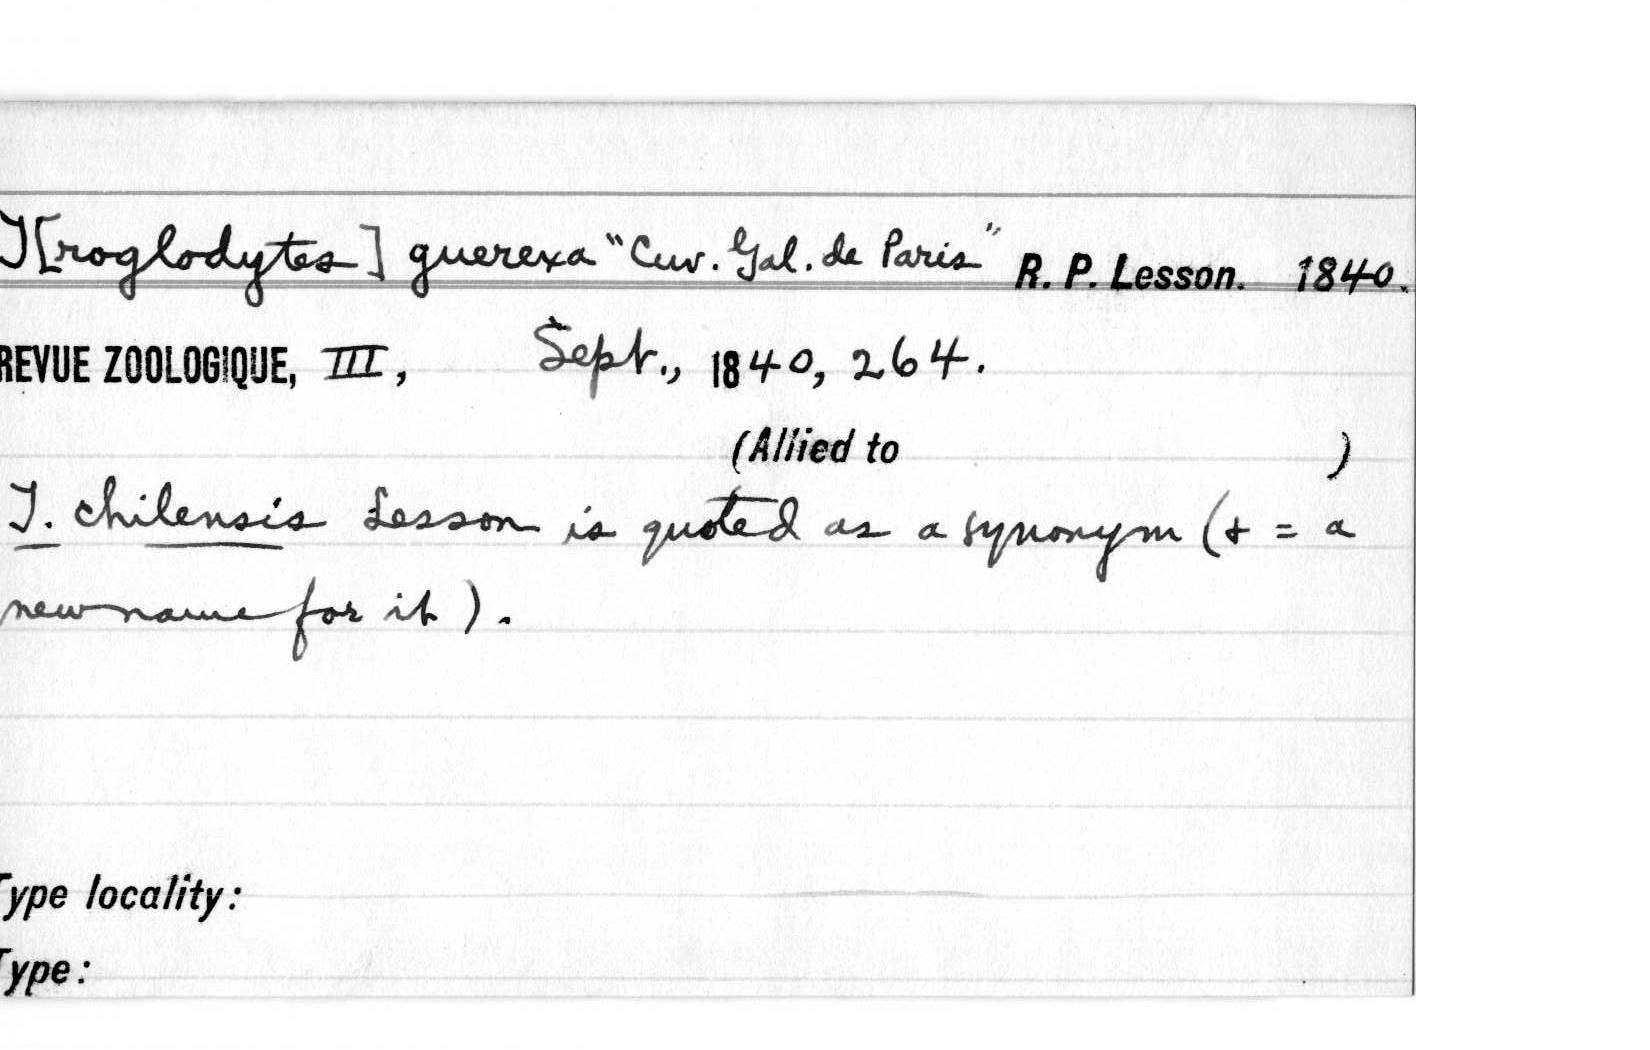 T[roglodytes] guerexa "Cuv. Gal. de Paris" R. P. Lesson. 1840.
REVUE ZOOLOGIQUE, III, Sept., 1840, 264.
(Allied to )
T. chilensis Lesson is quoted as a synonym (& = a
new name for it).
Type locality:
Type: